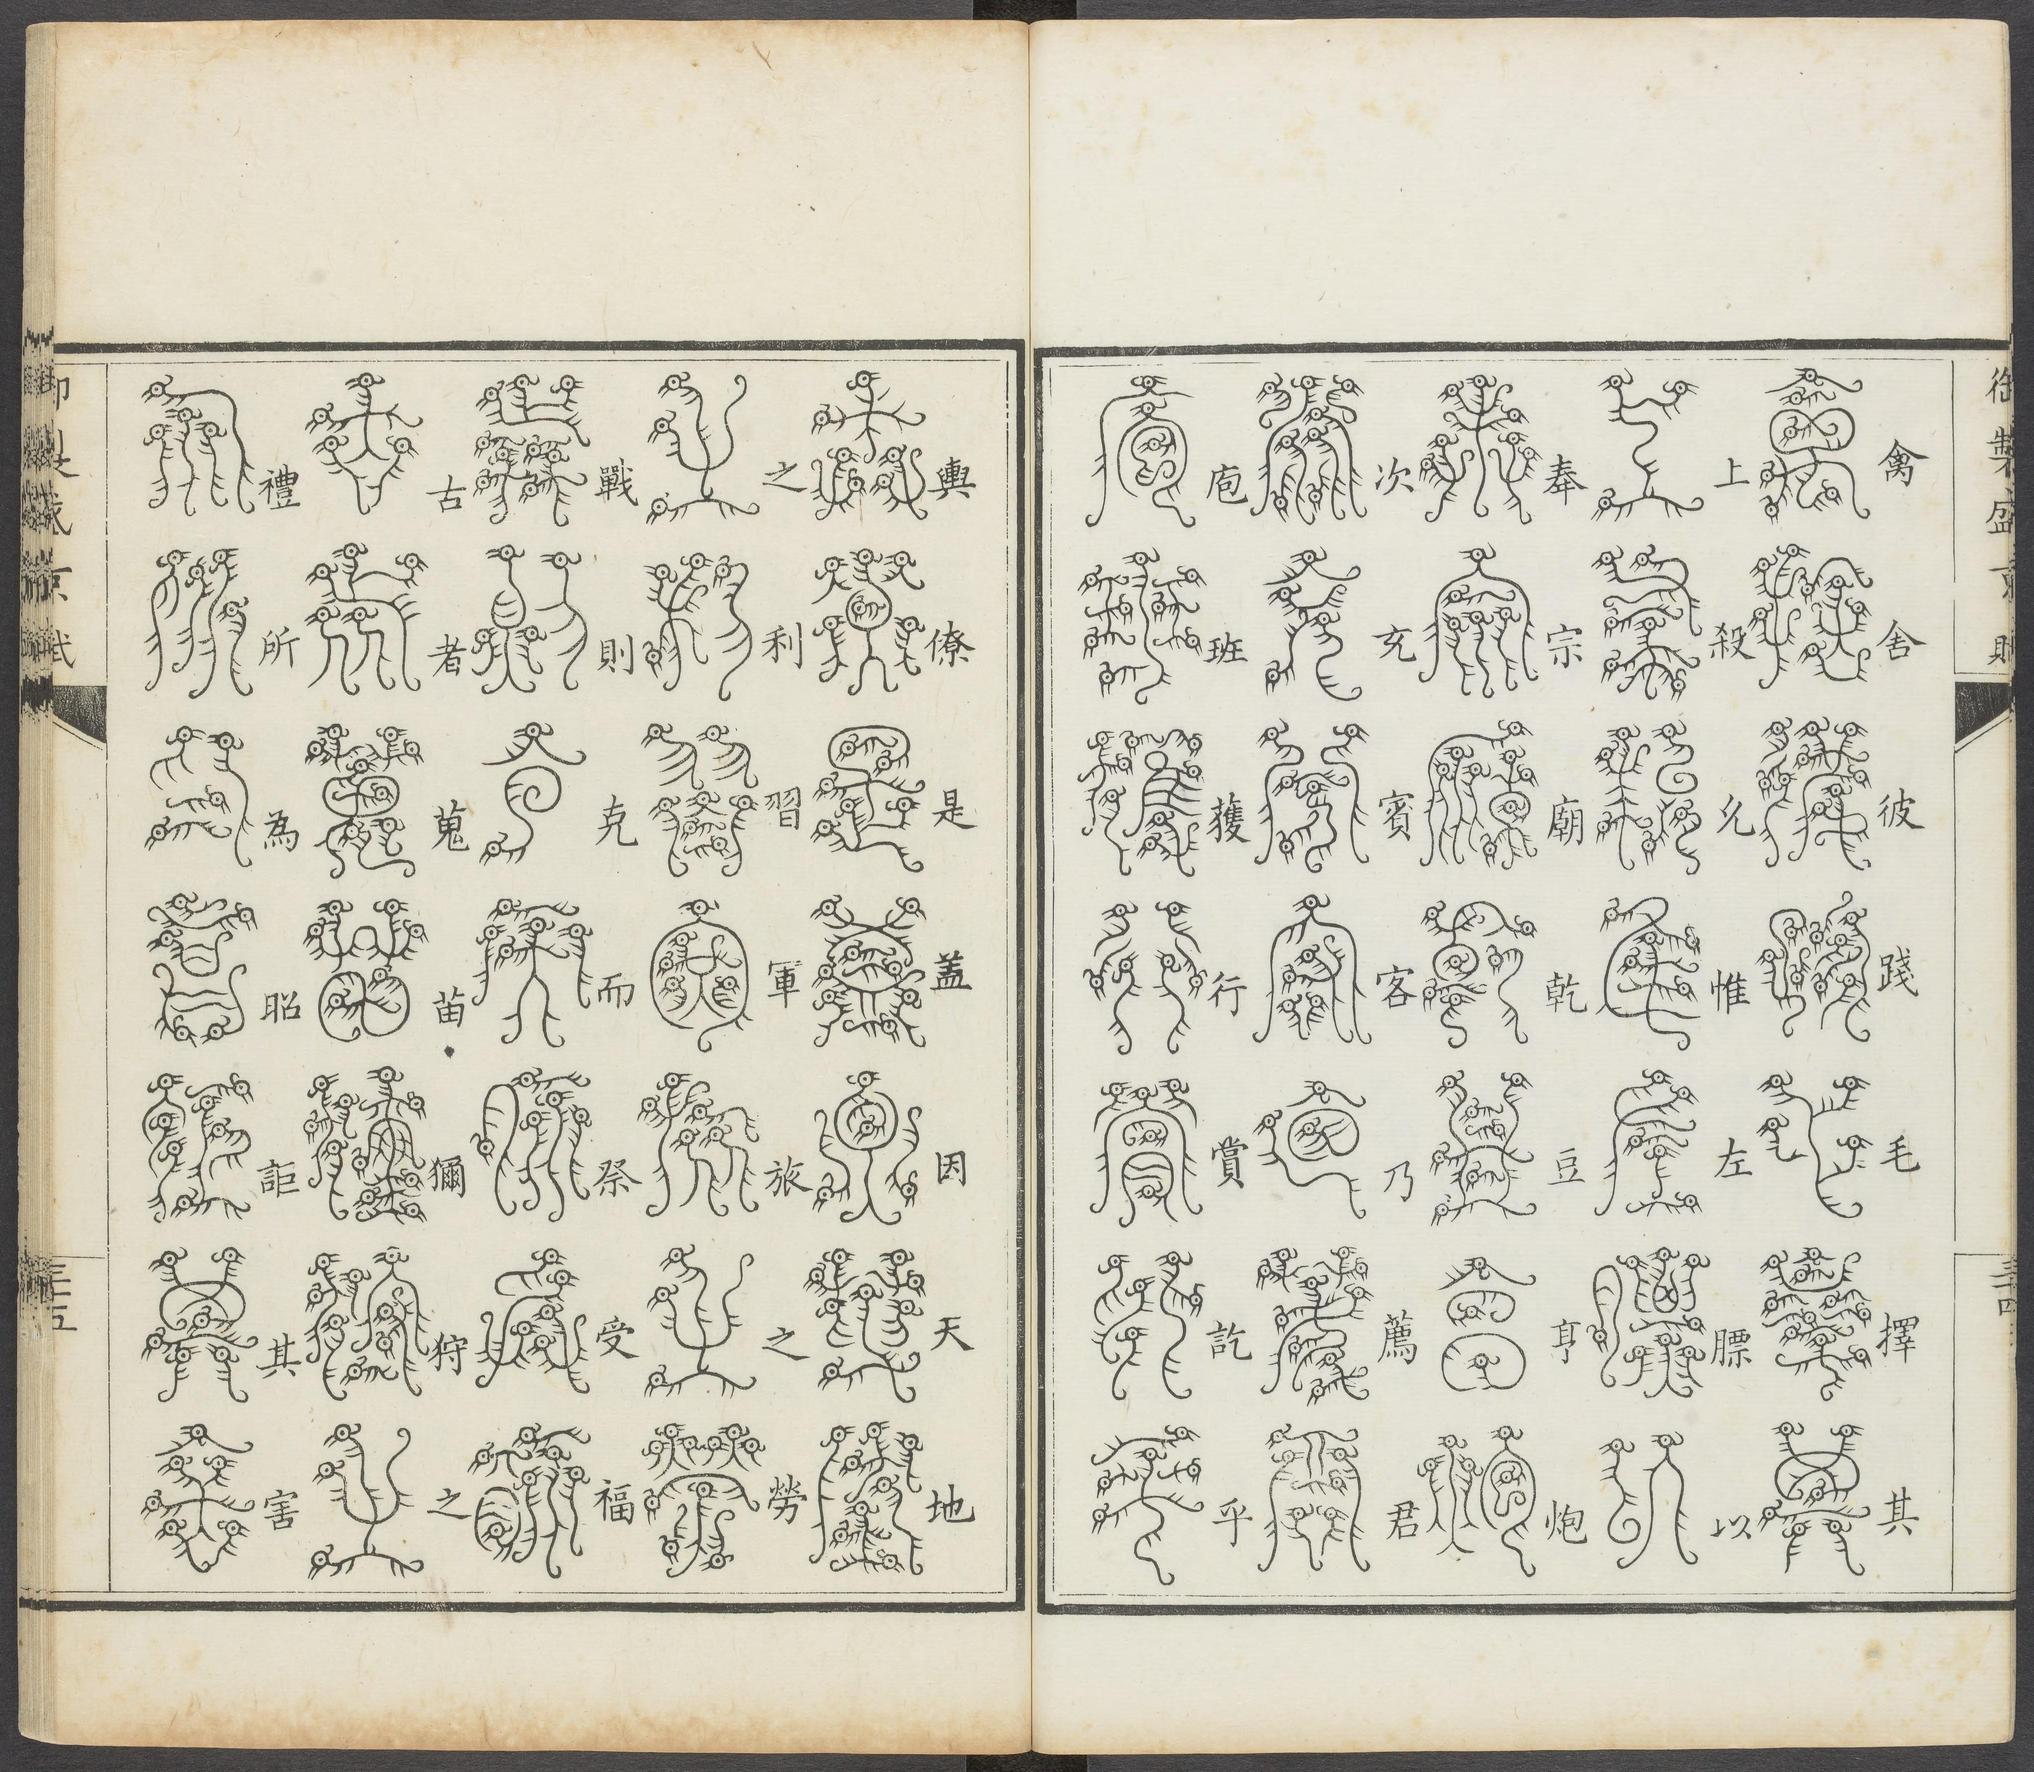 禽舍彼踐毛擇其
上殺乆惟左膘以
奉宗廟乾豆亨炮
次充賓客乃薦君
庖班獲行賞訖乎
輿僚是蓋因天地
之利習軍旅之勞
戰則克而祭受福
古者蒐苗獮狩之
禮所為昭詎其害
御製盛京賦
三十五